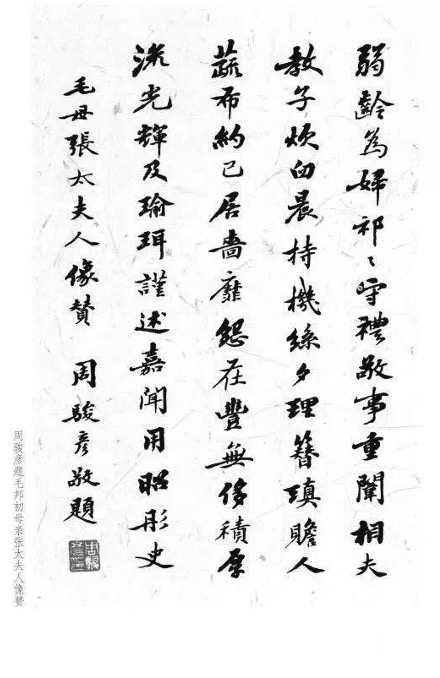 弱齡為婦祁〻守禮敬事重闈相夫
教子炊臼晨持機絲夕理簪瑱贍人
蔬布約己居嗇靡怨在豐無侈積厚
流光輝及瑜珥謹述嘉聞用昭彤史
毛母張太夫人像贊 周駿彥敬題
周骏彦题毛邦初母亲张太夫人像赞